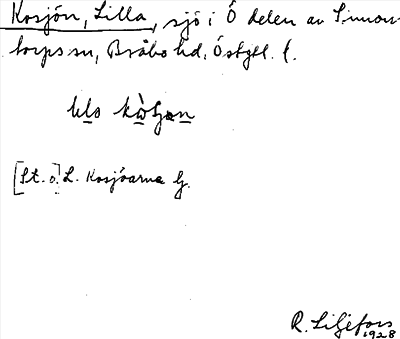 Kosjön, Lilla, sjö i Ö delen av Simons-
torps sn, Bråbo hd, Östgtl. l.
[St. o.] L. Kosjöarna G.
R. Liljefors
1928